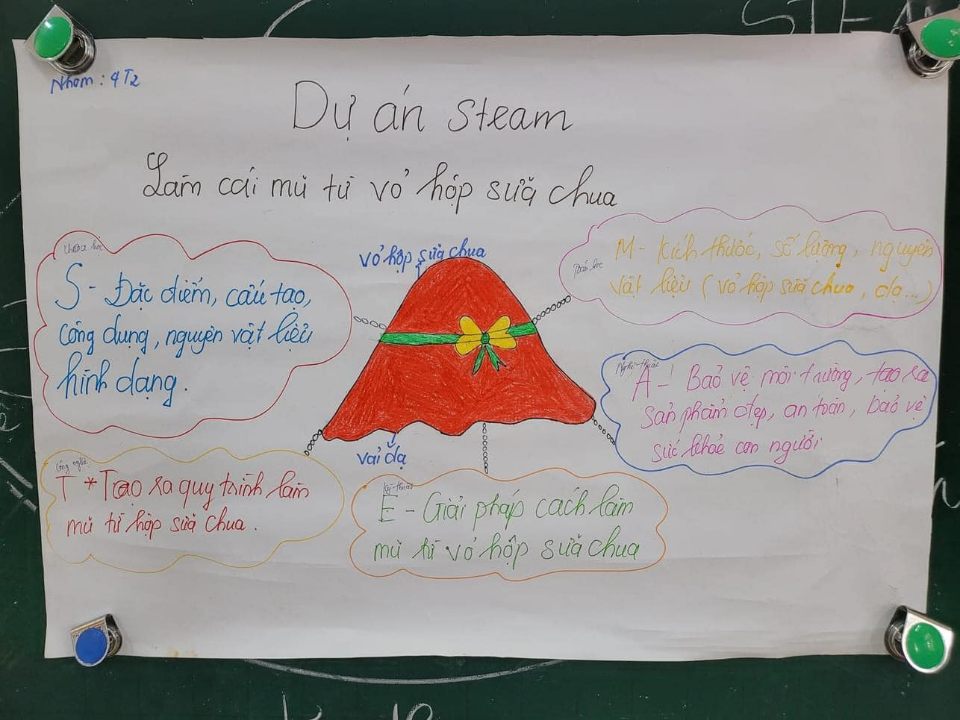 Nhóm : 4T2
Dự án steam
Làm cái mũ từ vỏ hộp sữa chua
Khoa học
S - Đặc điểm, cấu tạo,
công dụng, nguyên vật liệu
hình dạng.
vỏ hộp sữa chua
Toán học
M - kích thước, số lượng, nguyên
vật liệu ( vỏ hộp sữa chua, dạ... )
Nghệ thuật
A - Bảo vệ môi trường, tạo ra
sản phẩm đẹp, an toàn, bảo vệ
sức khỏe con người
vải dạ
Công nghệ
T * Tạo ra quy trình làm
mũ từ hộp sữa chua.
Kỹ thuật
E - Giải pháp cách làm
mũ từ vỏ hộp sữa chua